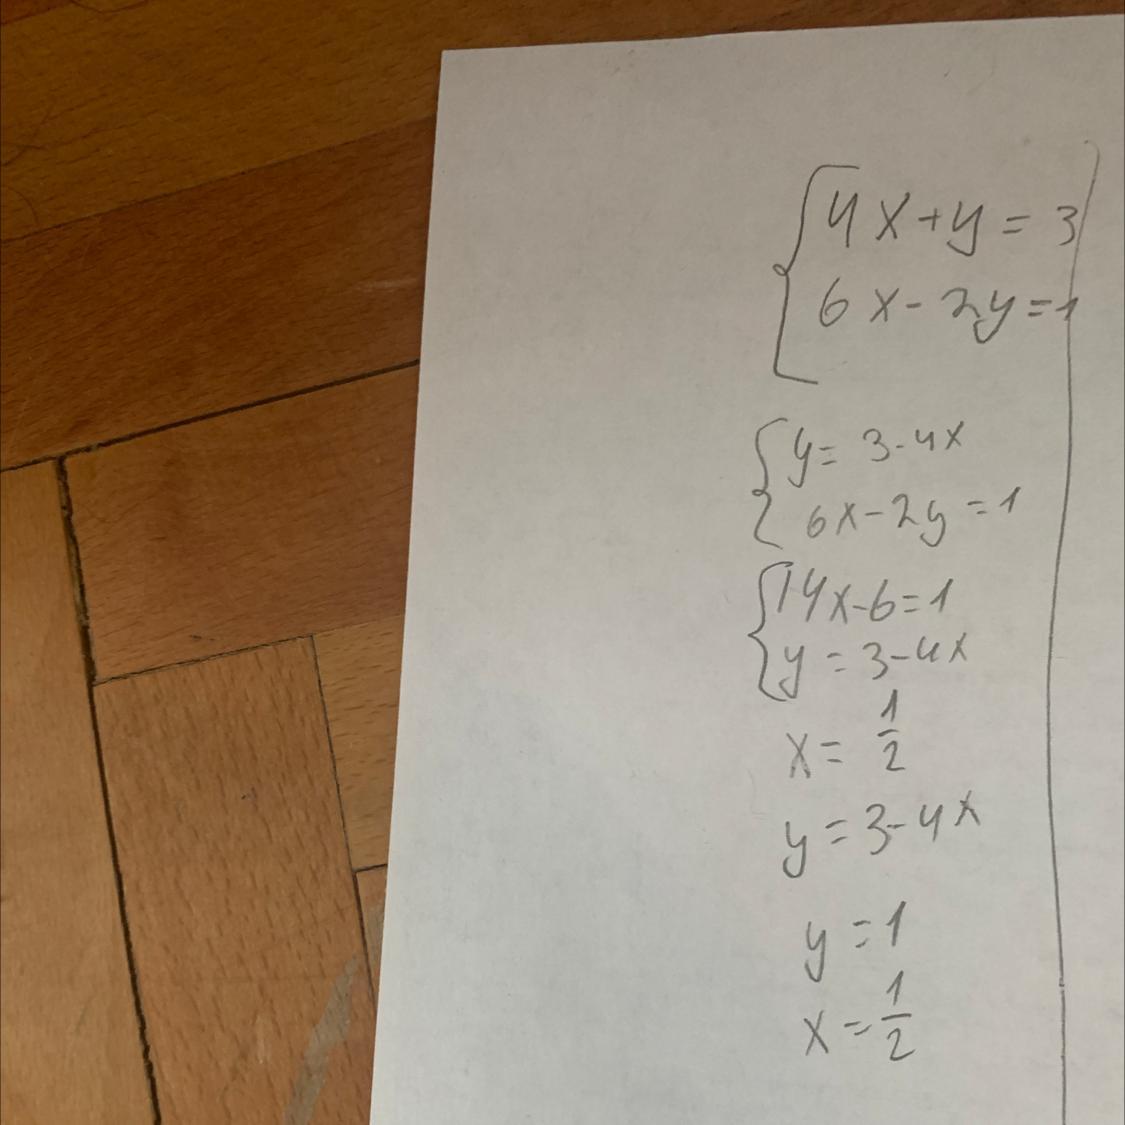 4x+y=3
6x-2y=1
y=3-4x
6x-2y=1
14x-6=1
y=3-4x
x=1/2
y=3-4x
y=1
x=1/2